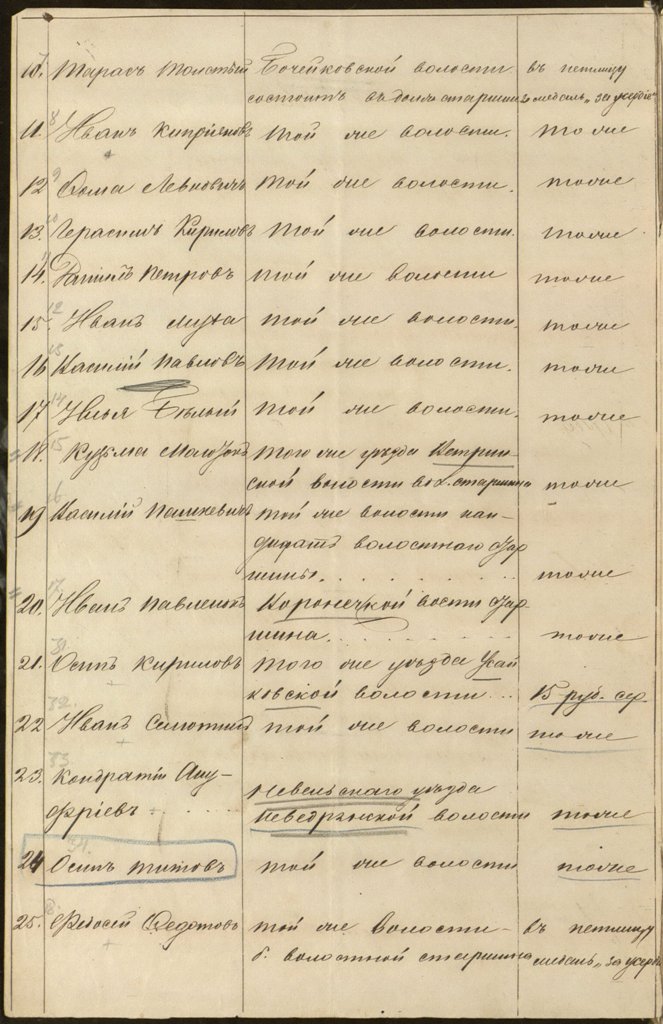 10. Тарасъ Толстый Бочейковской волости въ петлицу
состоитъ въ долж старшины медаль „За усердіе“
11. Иванъ Кипріяновъ той же волости. тоже
12 Ѳома Левковичъ той же волости. тоже
13. Герасимъ Кириловъ той же волости. тоже
14. Петровъ той же волости тоже
15. Иванъ Муха той же волости. тоже
16 Василій Павловъ той же волости. тоже
17 Илья Бѣлый той же волости. тоже
18. Кузьма того же уѣзда Ветрин-
ской волости старшина тоже
19 Василій Пашкевичъ той же волости кан-
дидатъ волостнаго стар
шины. . . . . . . . . тоже
20. Иванъ Павленокъ Воронечской вости стар
шина. . . . . . . . тоже
21. Осипъ Кириловъ того же уѣзда Усай
ковской волости . . . 15 руб. сер.
22 Иванъ той же волости тоже
23. Кондратій Ану-
фріевъ . . . . . Невельскаго уѣзда
Неведрянской волости тоже
24 Осипъ Титовъ той же волости тоже
25. Федосей Федотовъ той же волости – въ петлицу
б. волостной старшина медаль „За усерд